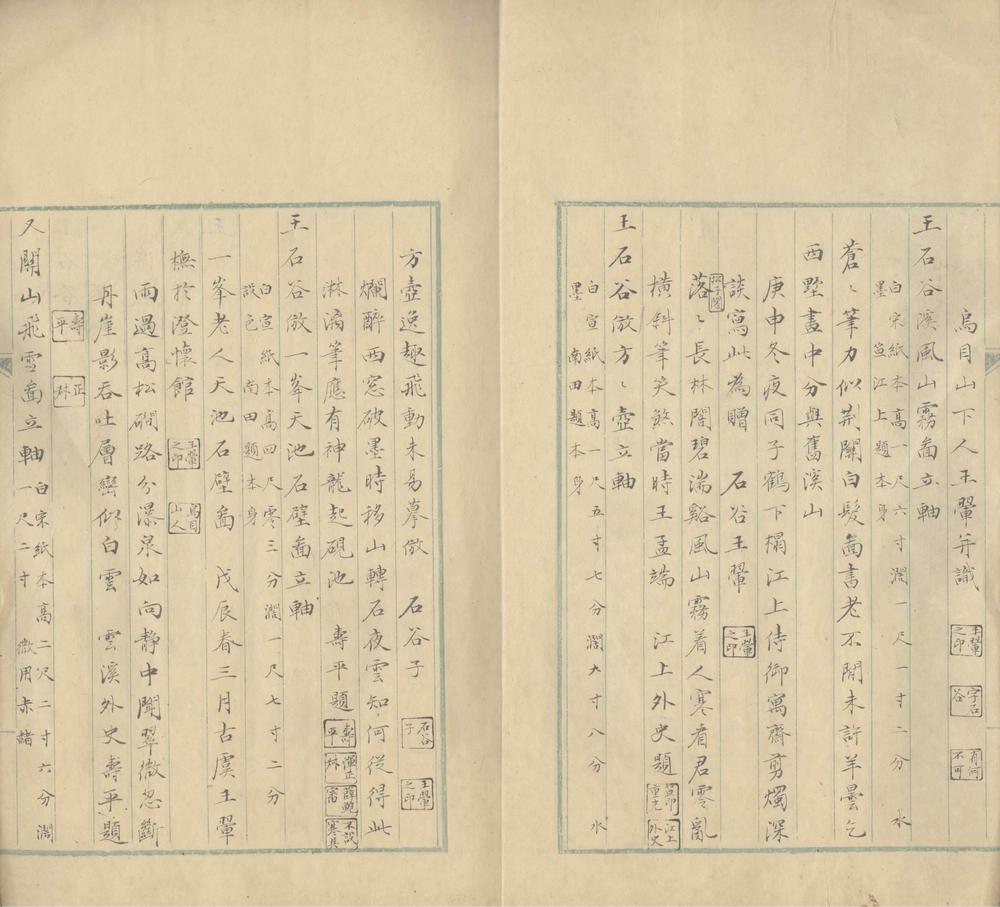 烏目山下人王翬并識 王翬之印 字石谷 有何不可
王石谷溪風山霧啚立軸
白宋紙本高一尺六寸濶一尺一寸二分 水
墨笪江上題本身
蒼〻筆力似荆關白髮啚書老不閒未許羊曇乞
西墅畫中分與舊溪山
庚申冬夜同子鶴下榻江上侍御寓齋剪燭深
談寫此為贈 石谷王翬 王翬之印
落〻長林閟碧湍谿風山霧着人寒看君零亂
橫斜筆笑煞當時王孟端 江上外史題 笪印重光 江上外史
王石谷倣方〻壺立軸
白宣紙本高一尺五寸七分濶大寸八分 水
墨南田題本身
方壺逸趣飛動未易摹倣 石谷子 石谷子 王翬之印
爛醉西窓破墨時移山轉石夜雲知何從得此
淋漓筆應有神龍起硯池 壽平題 壽平 惲正叔
王石谷倣一峯天池石壁啚立軸
白宣紙本高四尺零三分濶一尺七寸二分
設色南田題本身
一峯老人天池石壁啚 戊辰春三月古虞王翬
橅於澄懷館 王翬之印 烏目山人
雨過高松磵路分瀑泉如向靜中聞翠微忽斷
丹崖影吞吐層巒仰白雲 雲溪外史壽平題
壽平 正叔
又關山飛雪啚立軸
白宋紙本高二尺二寸六分濶
一尺二寸 微用赤赭